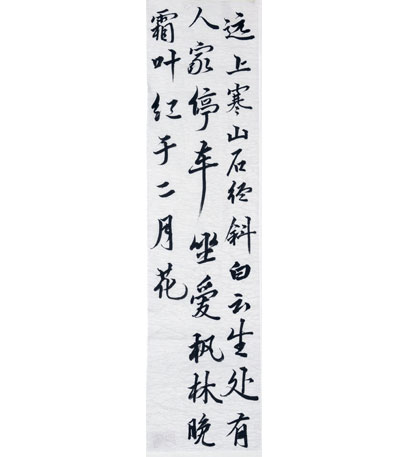 远上寒山石径斜白云生处有
人家停车坐爱枫林晚
霜叶红于二月花